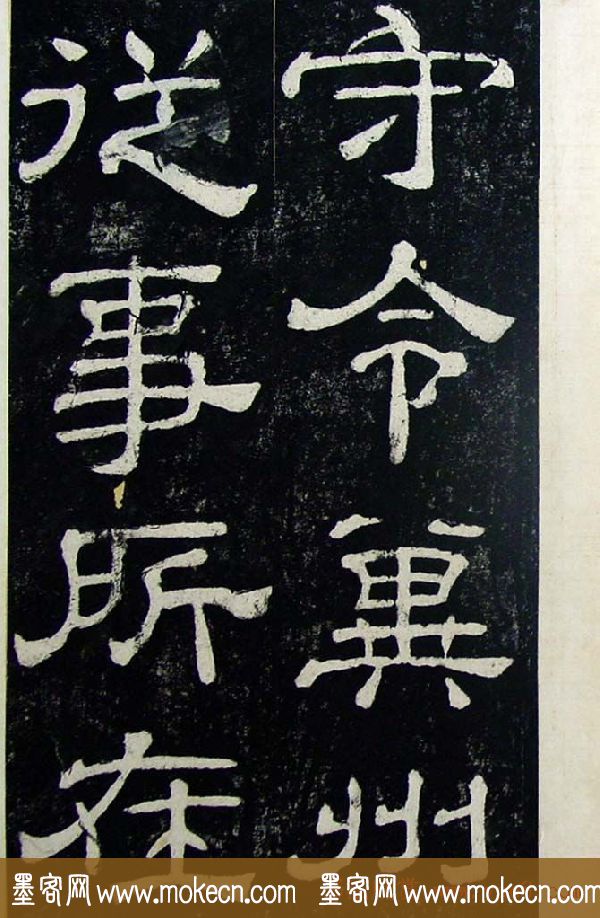 守令冀州
從事所在
墨客网 www.mokecn.com 墨客网 www.mokecn.com